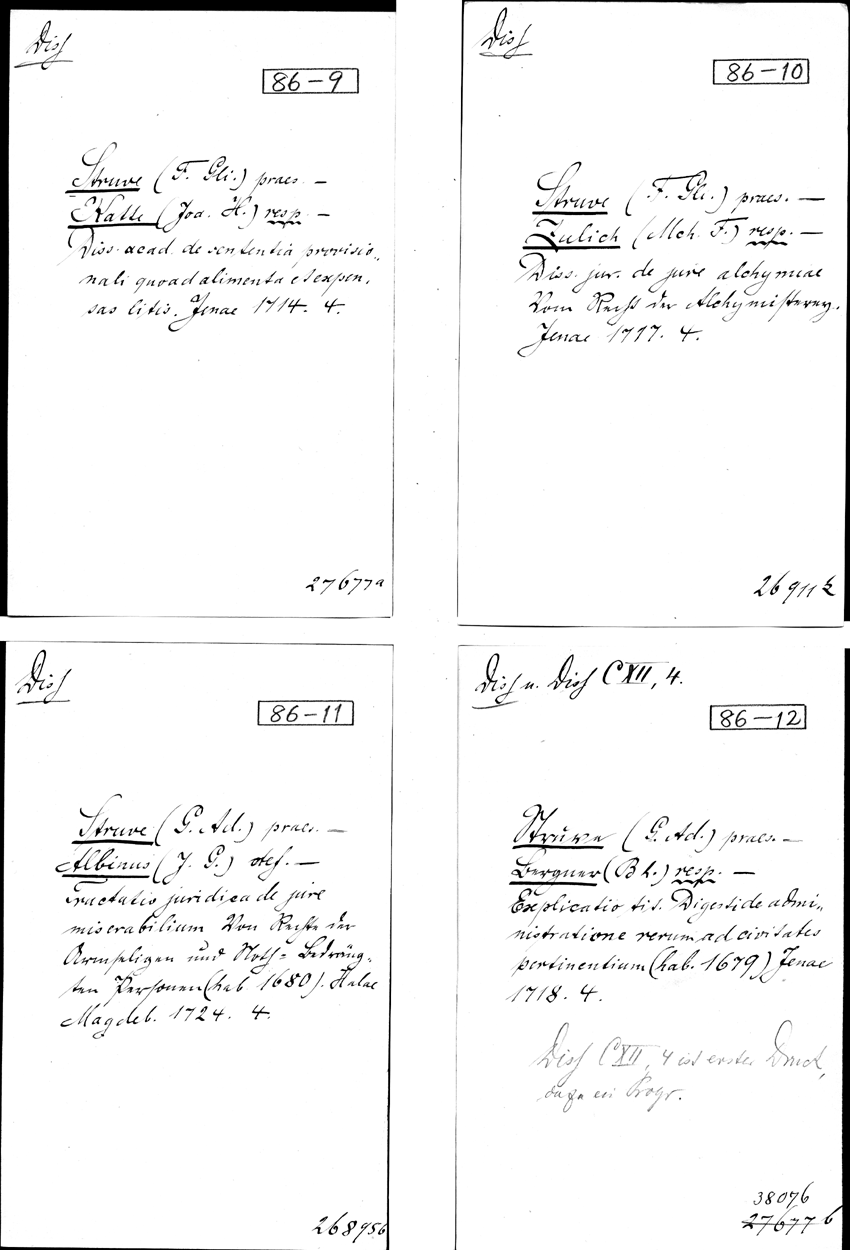 Diss
86-9
Struve (F. Gli.) praes. —
Katte (Joa. H.) resp. —
Diss. acad. de sententia provisio„
nali quoad alimenta et expen„
sas litis. Jenae 1714. 4.
27677a
Diss
86-10
Struve (F. Gli.) praes. —
Zulich (Mch. F.) resp. —
Diss. jur. de jure alchymiae
Vom Recht der Alchymisterey.
Jenae 1717. 4.
26911
Diss
86-11
Struve (G. Ad.) praes. —
Albinus (J. G.) —
Tractatio juridica de jure
miserabilium Von Rechte der
Armseligen und Noth= Bedräng„
ten Personen (hab 1680). Halae
Magdeb. 1724. 4.
26895b
Diss u. Diss CXII, 4.
86-12
Struve (G. Ad.) praes. —
Bergner (Bh.) resp. —
Explicatio tit. Digesti de admi„
nistratione rerum ad civitates
pertinentium (hab. 1679) Jenae
1718. 4.
Diss CXII, 4 ist erster Druck,
ein Progr.
38076
27677b